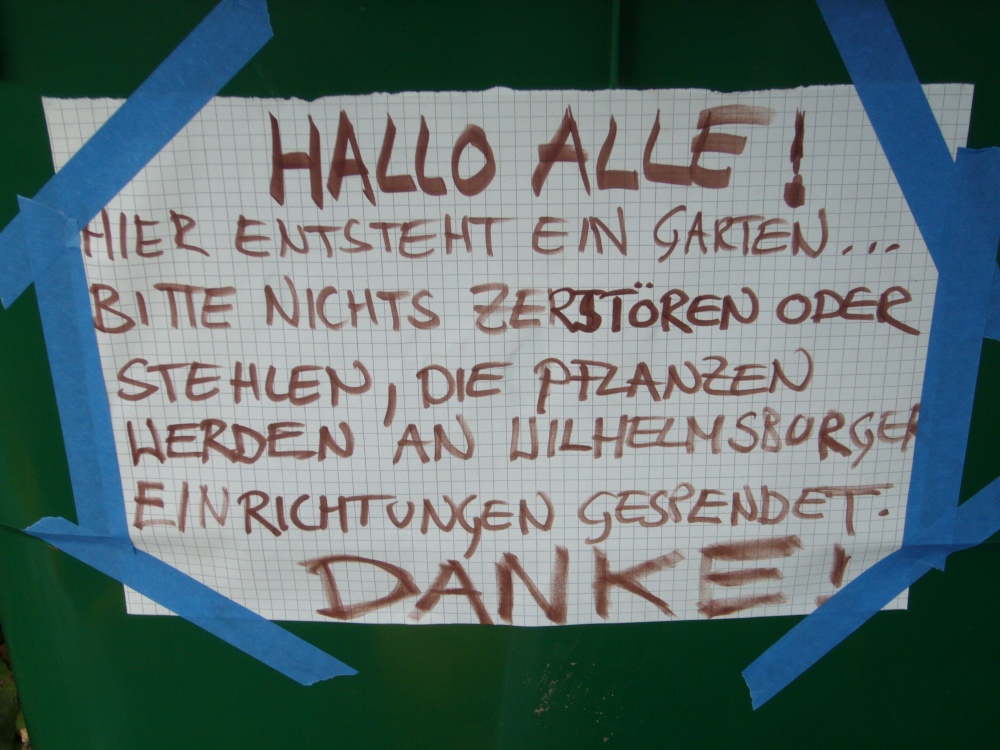 HALLO ALLE!
HIER ENTSTEHT EIN GARTEN...
BITTE NICHTS ZERSTÖREN ODER
STEHLEN, DIE PFLANZEN
WERDEN AN WILHELMSBURGER
EINRICHTUNGEN GESPENDET.
DANKE!